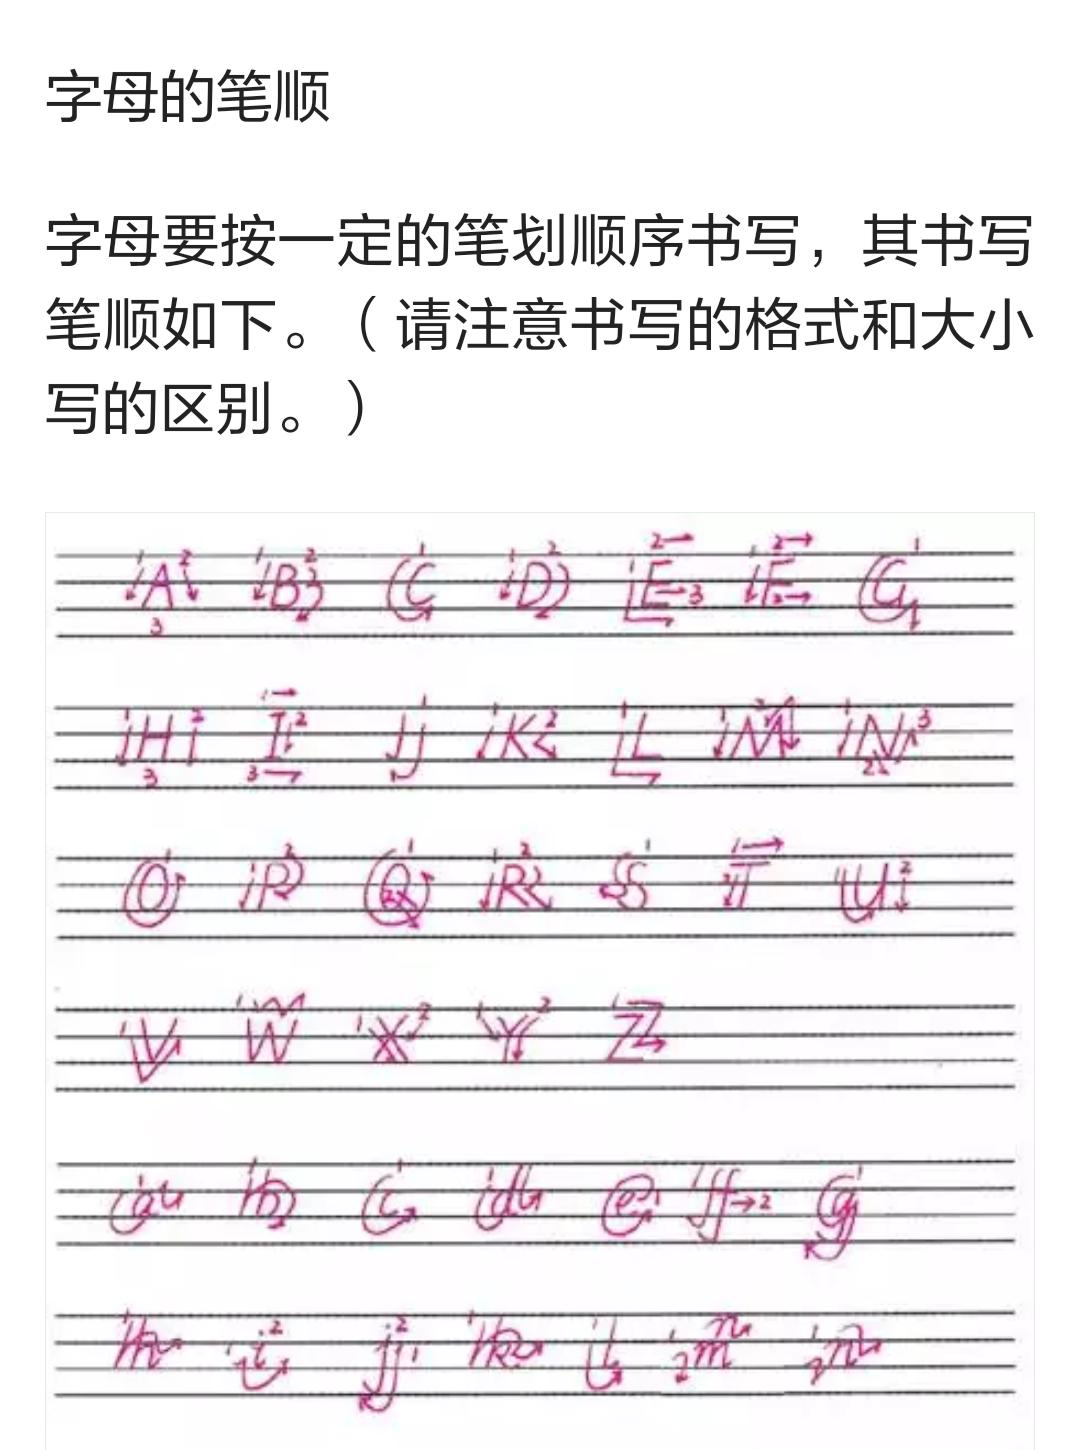 字母的笔顺
字母要按一定的笔划顺序书写，其书写
笔顺如下。（请注意书写的格式和大小
写的区别。）
A B C D E F G
H I J K L M N
O P Q R S T U
V W X Y Z
a b c d e f g
h i j k l m n